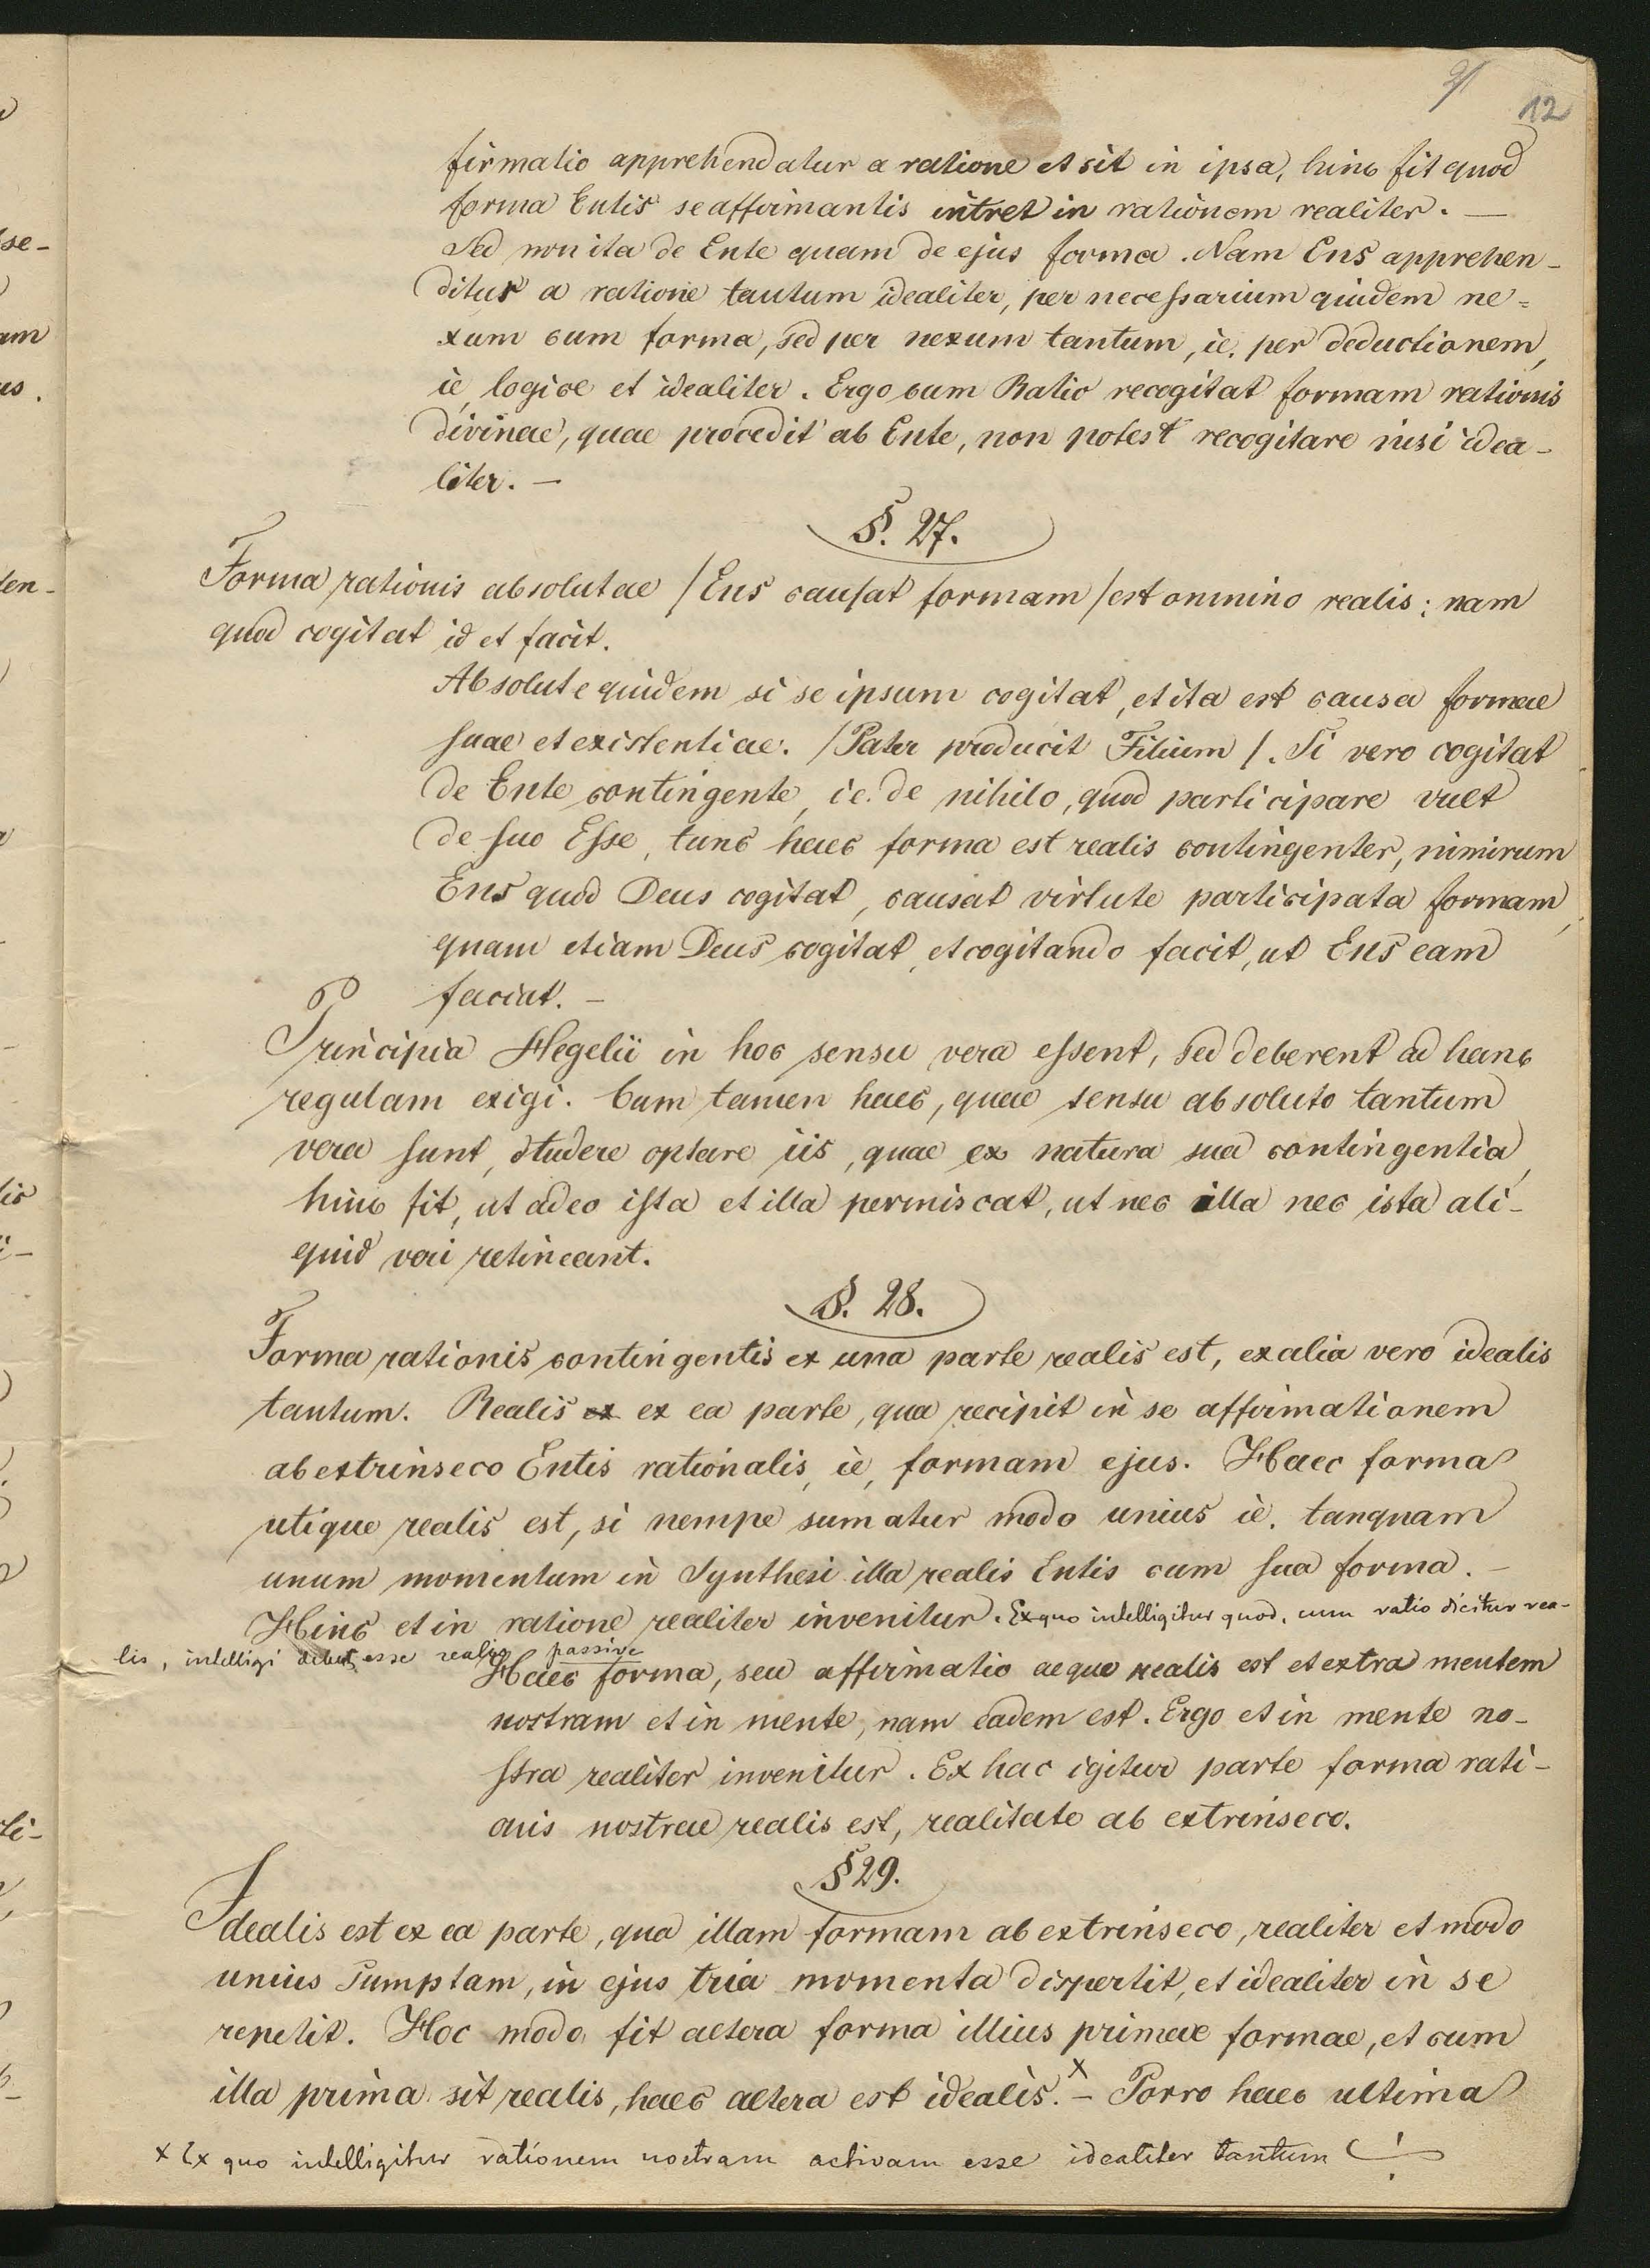 12
firmatio apprehendatur a ratione et sit in ipsa, hinc fit quod
forma Entis se affirmantis intret in rationem realiter. —
Sed non ita de Ente quam de ejus forma. Nam Ens apprehen-
ditur a ratione tantum idealiter, per necessarium quidem ne=
xum cum forma, sed per nexum tantum, ie. per deductionem,
ie, logice et idealiter. Ergo cum Ratio recogitat formam rationis
divinae, quae procedit ab Ente, non potest recogitare nisi idea-
liter. —
§. 27.
Forma rationis absolutae /Ens causat formam/ est omnino realis: nam
quod cogitat id et facit.
Absolute quidem si se ipsum cogitat, et ita est causa formae
suae et existentiae. /Pater producit Filium/. Si vero cogitat
de Ente contingente, ie. de nihilo, quod participare vult
de suo Esse, tunc haec forma est realis contingenter, nimirum
Ens quod Deus cogitat, causat virtute participata formam,
quam etiam Deus cogitat, et cogitando facit, ut Ens eam
faciat. —
Principia Hegelii in hoc sensu vera essent, sed deberent ad hanc
regulam exigi. Cum tamen haec, quae sensu absoluto tantum
vera sunt, studere optare iis, quae ex natura sua contingentia,
hinc fit, ut adeo ista et illa permiscat, ut nec illa nec ista ali-
quid veri retineant.
§. 28.
Forma rationis contingentis ex una parte realis est, ex alia vero idealis
tantum. Realis ex ex ea parte, qua recipit in se affirmationem
ab extrinseco Entis rationalis, ie, formam ejus. Haec forma
utique realis est, si nempe sumatur modo unius ie. tanquam
unum momentum in Synthesi illa realis Entis cum sua forma. —
Hinc et in ratione realiter invenitur. Ex quo intelligitur quod, cum ratio dicitur rea-
lis, intelligi debet, esse realis passive
Haec forma, seu affirmatio aeque realis est et extra mentem
nostram et in mente, nam eadem est. Ergo et in mente no-
stra realiter invenitur. Ex hac igitur parte forma rati-
onis nostrae realis est, realitate ab extrinseco.
§ 29.
Idealis est ex ea parte, qua illam formam ab extrinseco, realiter et modo
unius sumptam, in ejus tria momenta dispertit, et idealiter in se
repetit. Hoc modo fit altera forma illius primae formae, et cum
illa prima sit realis, haec altera est idealis. x — Porro haec ultima
x Ex quo intelligitur rationem nostram activam esse idealiter tantum